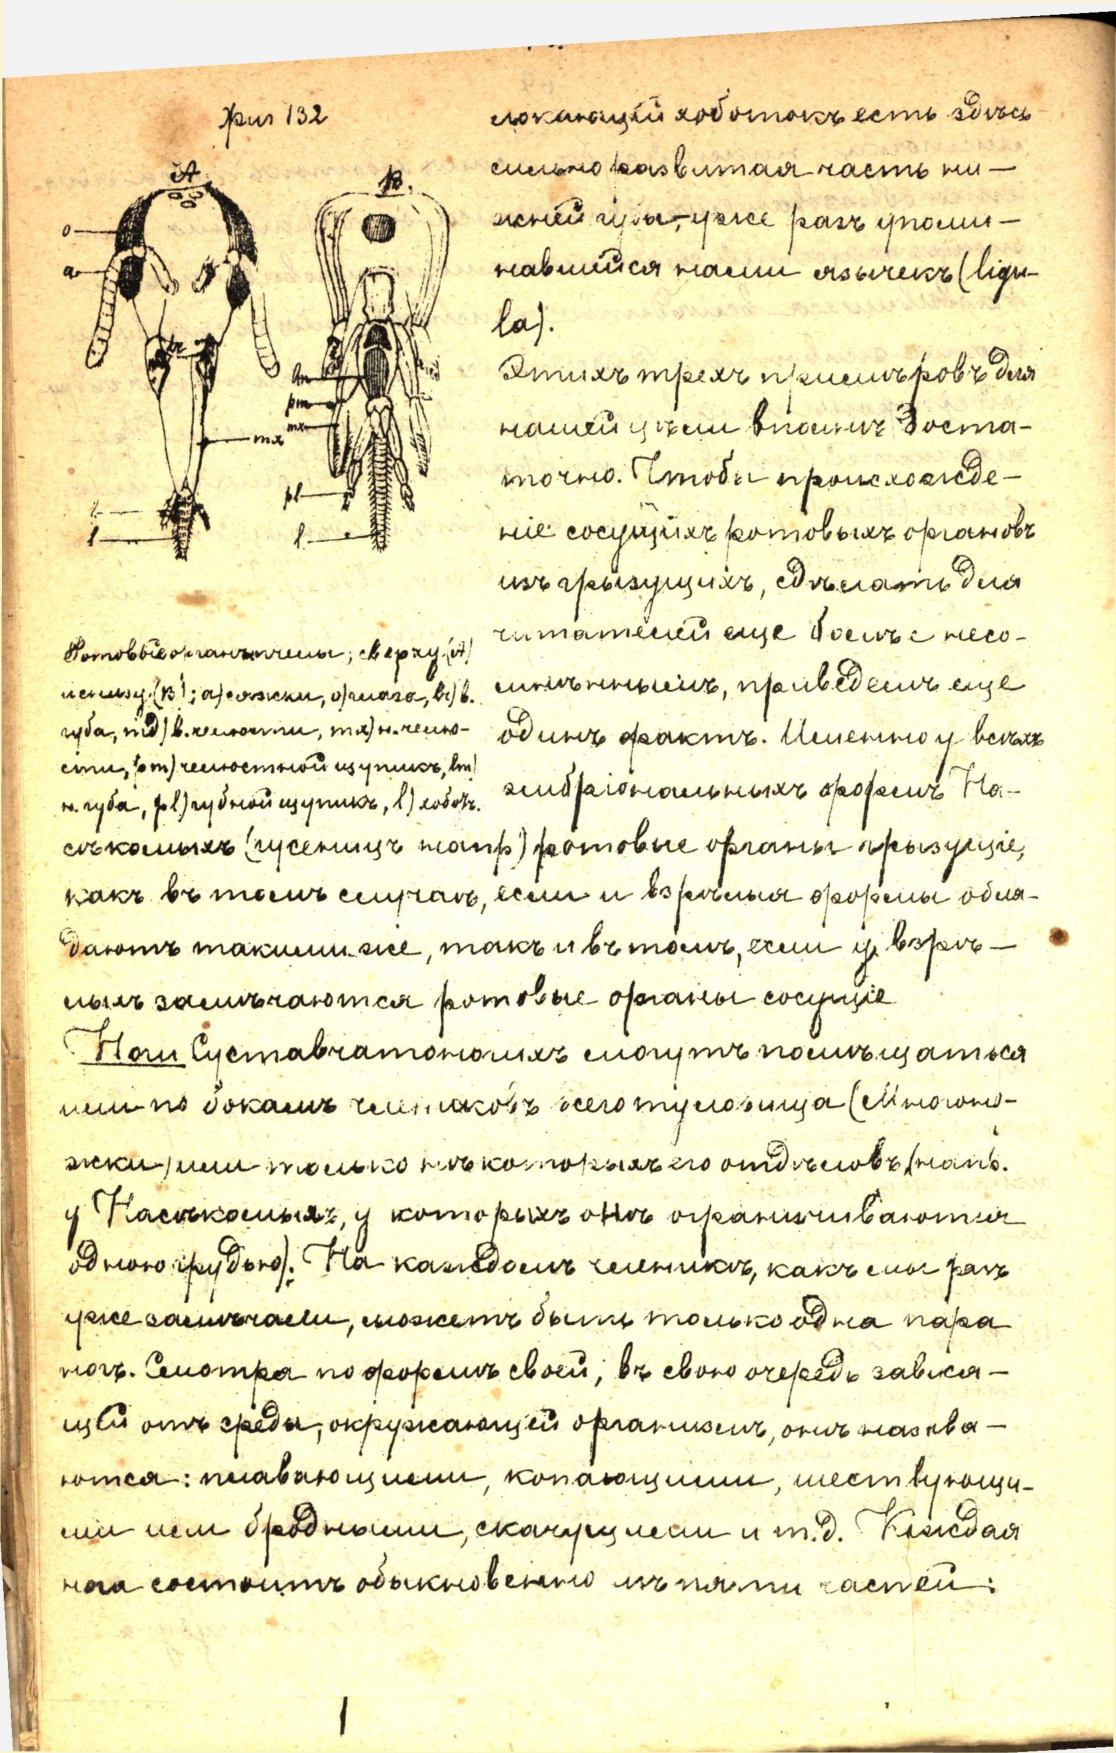 Фиг 132
A
B.
o
a
br
lm
pm
mx
mx
pl
l
l
Ротовые органы пчелы; сверху (A)
и снизу (B); a) сяжки, o) глаза, br) в.
губа, md) в. челюсти, mx) н. челю-
сти, pm) челюстной щупикъ, lm)
н. губа, pl) губной щупикъ, l) хобот.
локающій хоботокъ есть здѣсь
сильно развитая часть ни-
жней губы, уже разъ упоми-
навшійся нами язычекъ (ligu-
la).
Этихъ трехъ примѣровъ для
нашей цѣли вполнѣ доста-
точно. Чтобы происхожде-
ніе сосущихъ ротовыхъ органовъ
изъ грызущихъ, сдѣлать для
читателей еще болѣе несо-
мнѣннымъ, приведемъ еще
одинъ фактъ. Именно у всѣхъ
эмбріональныхъ формъ На-
сѣкомыхъ (гусеницъ напр) ротовые органы грызущіе,
какъ въ томъ случаѣ, если и взрѣлыя формы обла-
даютъ такими же, такъ и въ томъ, если у взрѣ-
лыхъ замѣчаются ротовые органы сосущіе
Ноги Суставчатоногихъ могутъ помѣщаться
или по бокамъ члениковъ всего туловища (Многоно-
жки) или только нѣкоторыхъ его отдѣловъ (напр.
у Насѣкомыхъ, у которыхъ онѣ ограничиваются
одною грудью). На каждомъ членикѣ, какъ мы разъ
уже замѣчали, можетъ быть только одна пара
ногъ. Смотря по формѣ своей, въ свою очередь завися-
щей отъ среды, окружающей организмъ, онѣ называ-
ются: плавающими, копающими, шествующи-
ми или бродными, скачущими и т.д. Каждая
нога состоитъ обыкновенно изъ пяти частей: